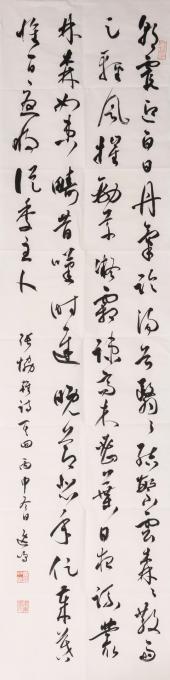 朝霞迎白日丹氣臨湯谷翳々結繁雲森々散雨
足輕風摧勁草凝霜竦高木密葉日夜疏叢
林森如束疇昔嘆時遲晚節悲年促歲暮
懷百憂將從季主卜 張協雜詩其四 丙申冬日